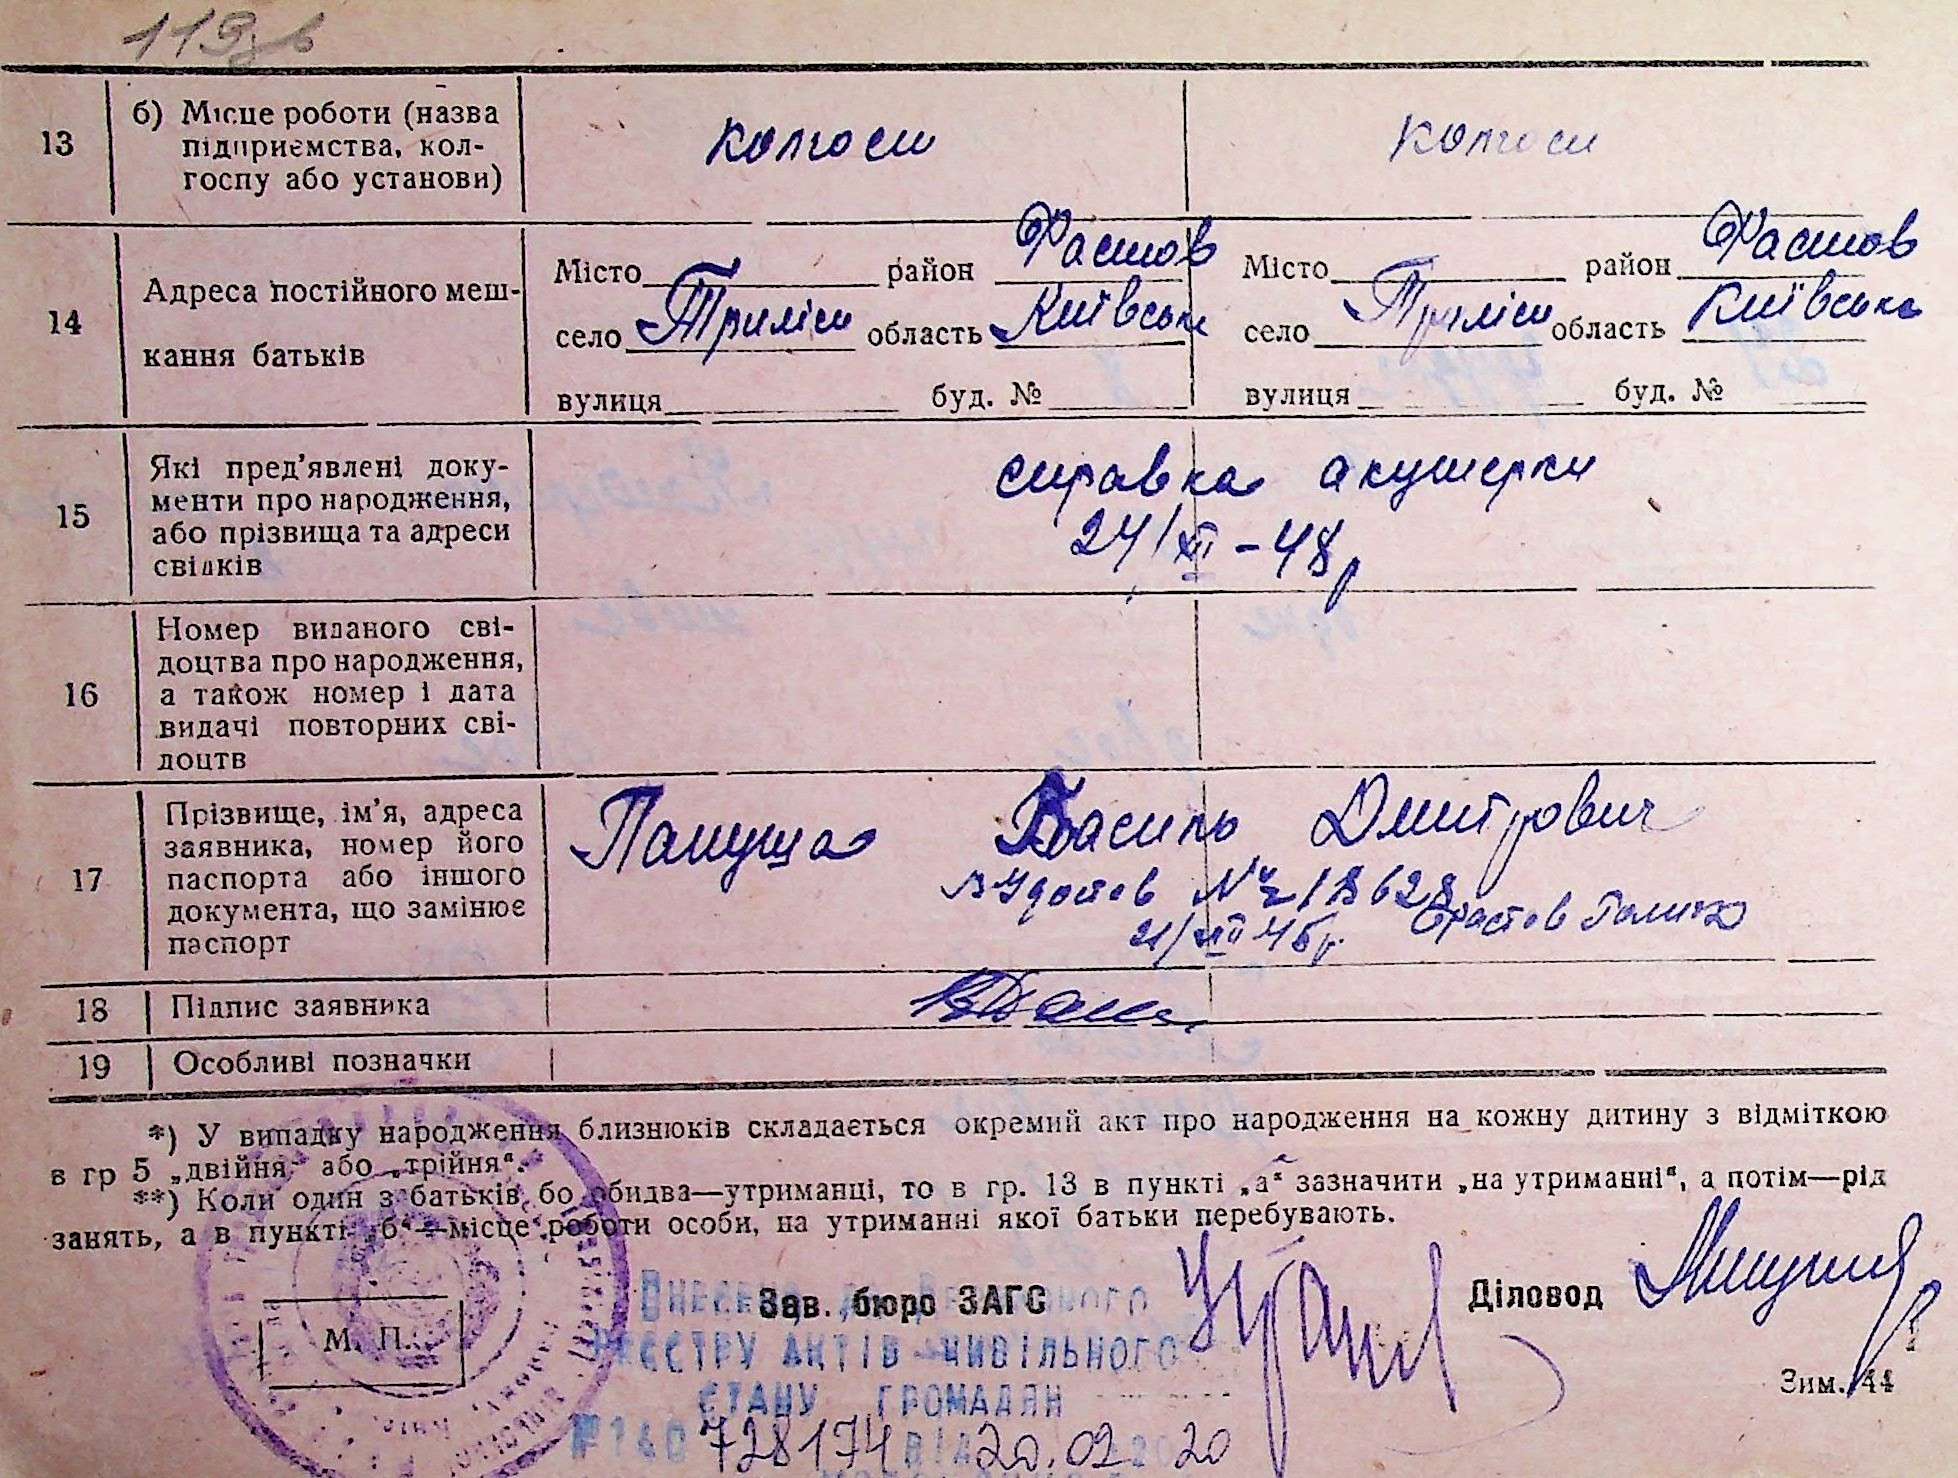 119
13
б) Місце роботи (назва
підприємства, кол-
госпу або установи)
колгосп
колгосп
14
Адреса постійного меш-
кання батьків
Місто район Фастов
село Триліси область Київська
вулиця буд. №
Місто район Фастов
село Триліси область Київська
вулиця буд. №
15
Які пред'явлені доку-
менти про народження,
або прізвища та адреси
свідків
справка акушерки
24/XII-48р
16
Номер виданого сві-
доцтва про народження,
а також номер і дата
видачі повторних сві-
доцтв
17
Прізвище, ім'я, адреса
заявника, номер його
паспорта або іншого
документа, що замінює
паспорт
Василь Дмитрович
18
Підпис заявника
19
Особливі позначки
*) У випадку народження близнюків складається окремий акт про народження на кожну дитину з відміткою
в гр 5 „двійня“ або „трійня“.
**) Коли один з батьків бо обидва—утриманці, то в гр. 13 в пункті „а“ зазначити „на утриманні“, а потім—рід
занять, а в пункті „б“—місце роботи особи, на утриманні якої батьки перебувають.
Зав. бюро ЗАГС
Діловод
М. П.
РЕЄСТРУ АКТІВ ЦИВІЛЬНОГО
СТАНУ ГРОМАДЯН
728174 від 20.02 2020
Зим. 44